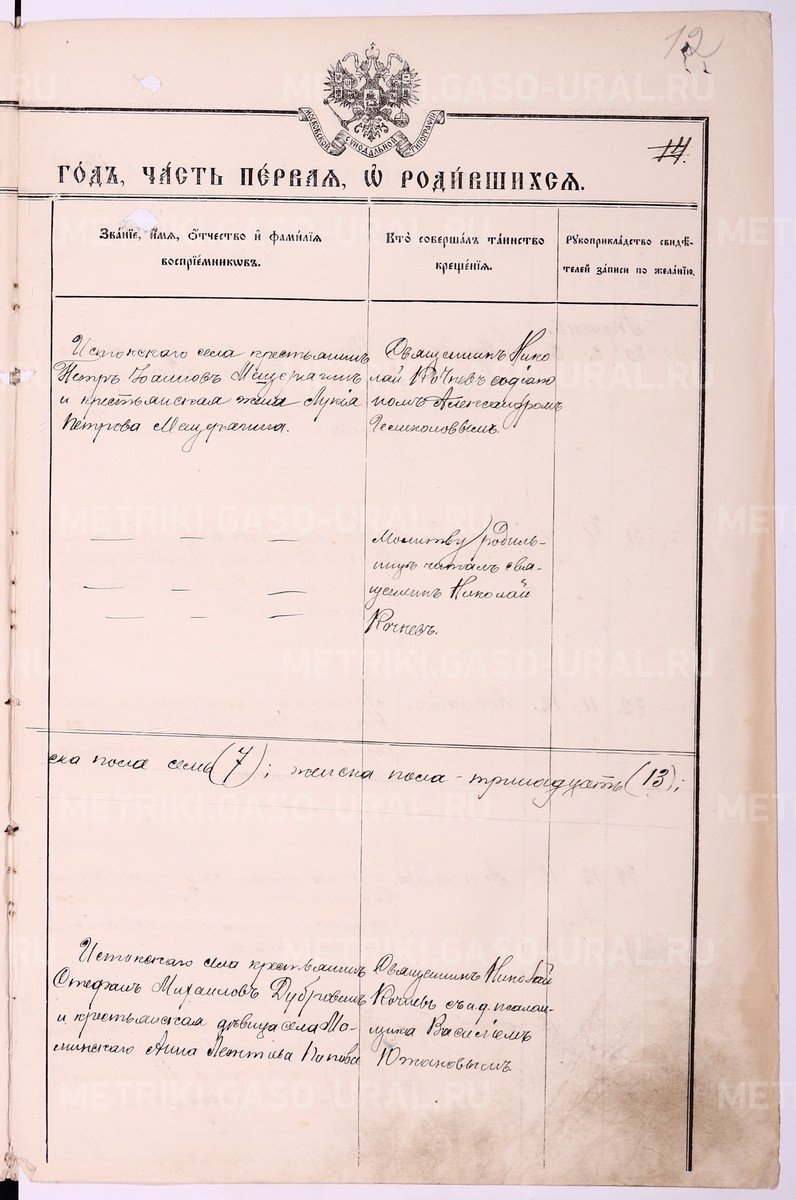 12
МОСКОВСКОЙ СУНОДАЛЬНОЙ ТИПОГРАФІИ
14.
ГОДЪ, ЧАСТЬ ПЕРВАЯ, Ѡ РОДИВШИХСЯ.
Званіе, имя, отчество и фамилія
воспріемниковъ.
Кто совершалъ таинство
крещенія.
Рукоприкладство свидѣ-
телей записи по желанію.
Истокскаго села крестьянинъ
Петръ Іоанновъ Мещерягинъ
и крестьянская жена Лукія
Петрова Мещерягина.
Священникъ Нико
лай Кочневъ съ діако
номъ Александромъ
Молитву родиль-
ницѣ читалъ свя-
щенникъ Николай
Кочневъ.
ска пола семь (7); женска пола - тринадцать (13);
Истокскаго села крестьянинъ
Стефанъ Михаиловъ
и крестьянская дѣвица села Ма-
минскаго Анна Леонтіева Попова
Священникъ Николай
Кочневъ съ и.д. псалом-
щика Василіемъ
Южаковымъ
METRIKI.GASO-URAL.RU